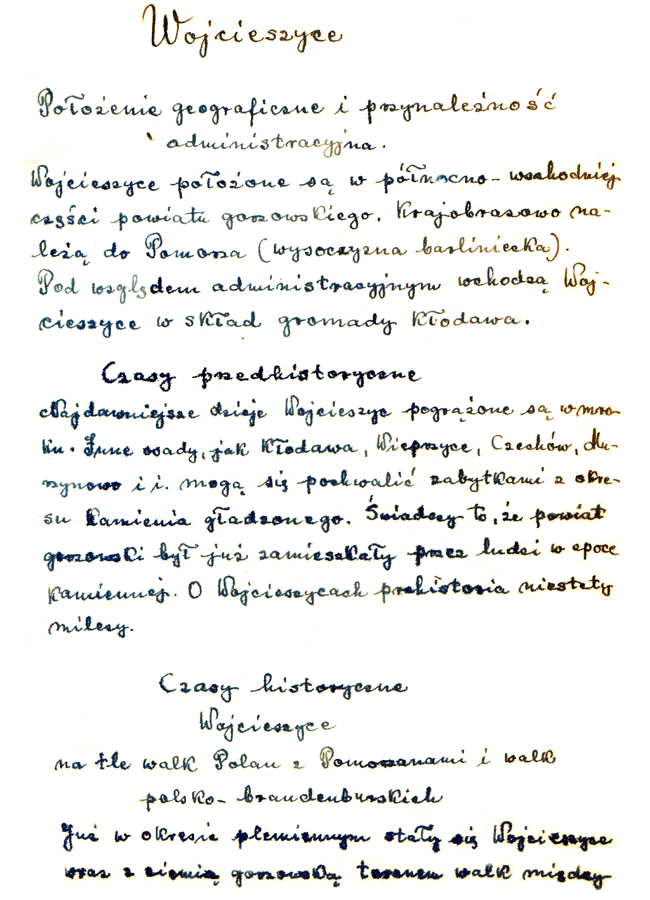 Wojcieszyce
Położenie geograficzne i przynależność
administracyjna.
Wojcieszyce położone są w północno-wschodniej
części powiatu gorzowskiego. Krajobrazowo na-
leżą do Pomorza (wysoczyzna barliniecka).
Pod względem administracyjnym wchodzą Woj-
cieszyce w skład gromady Kłodawa.
Czasy przedhistoryczne
Najdawniejsze dzieje Wojcieszyc pogrążone są w mro-
ku. Inne osady, jak Kłodawa, Wieprzyce, Czechów, Mu-
rzynowo i i. mogą się pochwalić zabytkami z okre-
su Kamienia gładzonego. Świadczy to, że powiat
gorzowski był już zamieszkały przez ludzi w epoce
Kamiennej. O Wojcieszycach prehistoria niestety
milczy.
Czasy historyczne
Wojcieszyce
na tle walk Polan z Pomorzanami i walk
polsko-brandenburskich
Już w okresie plemiennym stały się Wojcieszyce
wraz z ziemią gorzowską terenem walk między